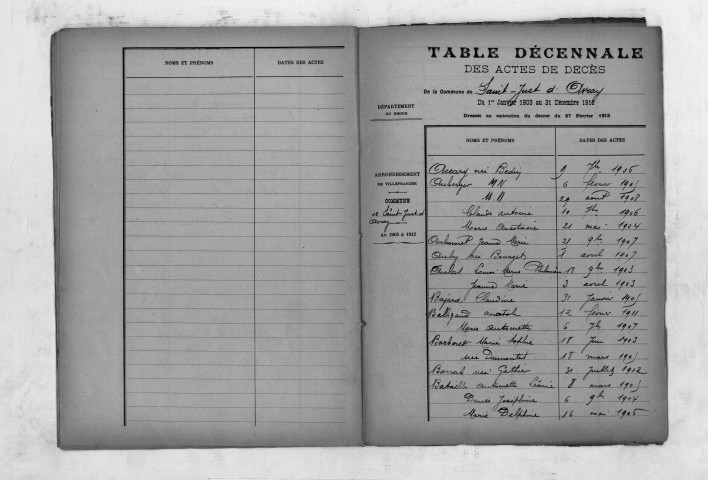 NOMS ET PRÉNOMS DATES DES ACTES
TABLE DÉCENNALE
DES ACTES DE DÉCÈS
De la Commune de Saint-Just d'Avray
Du 1er Janvier 1903 au 31 Décembre 1912
Dressée en exécution du décret du 27 Février 1913
DÉPARTEMENT
DU RHONE
ARRONDISSEMENT
DE VILLEFRANCHE
COMMUNE
de Saint-Just d'
Avray
An 1903 à 1912
NOMS ET PRÉNOMS DATES DES ACTES
née Bedin 9 1906
M N 6 février 190
M. N 29 août 1908
Claude antoine 10 1906
Marie 21 mai 1904
Jeanne Marie 28 9bre 1907
Auby née Bourget 1 avril 1907
Aulas Marie 18 9bre 1903
Jeanne Marie 3 avril 1903
Claudine 31 janvier 190
Baligand 12 février 1911
Marie antoinette 6 7bre 1907
Barberet Marie Sophie 18 juin 1903
née Dumontet 18 mars 190
née Gathier 30 juillet 1912
Bataille antoinette 8 mars 190
Joséphine 6 9bre 1904
Marie Delphine 16 mai 1906